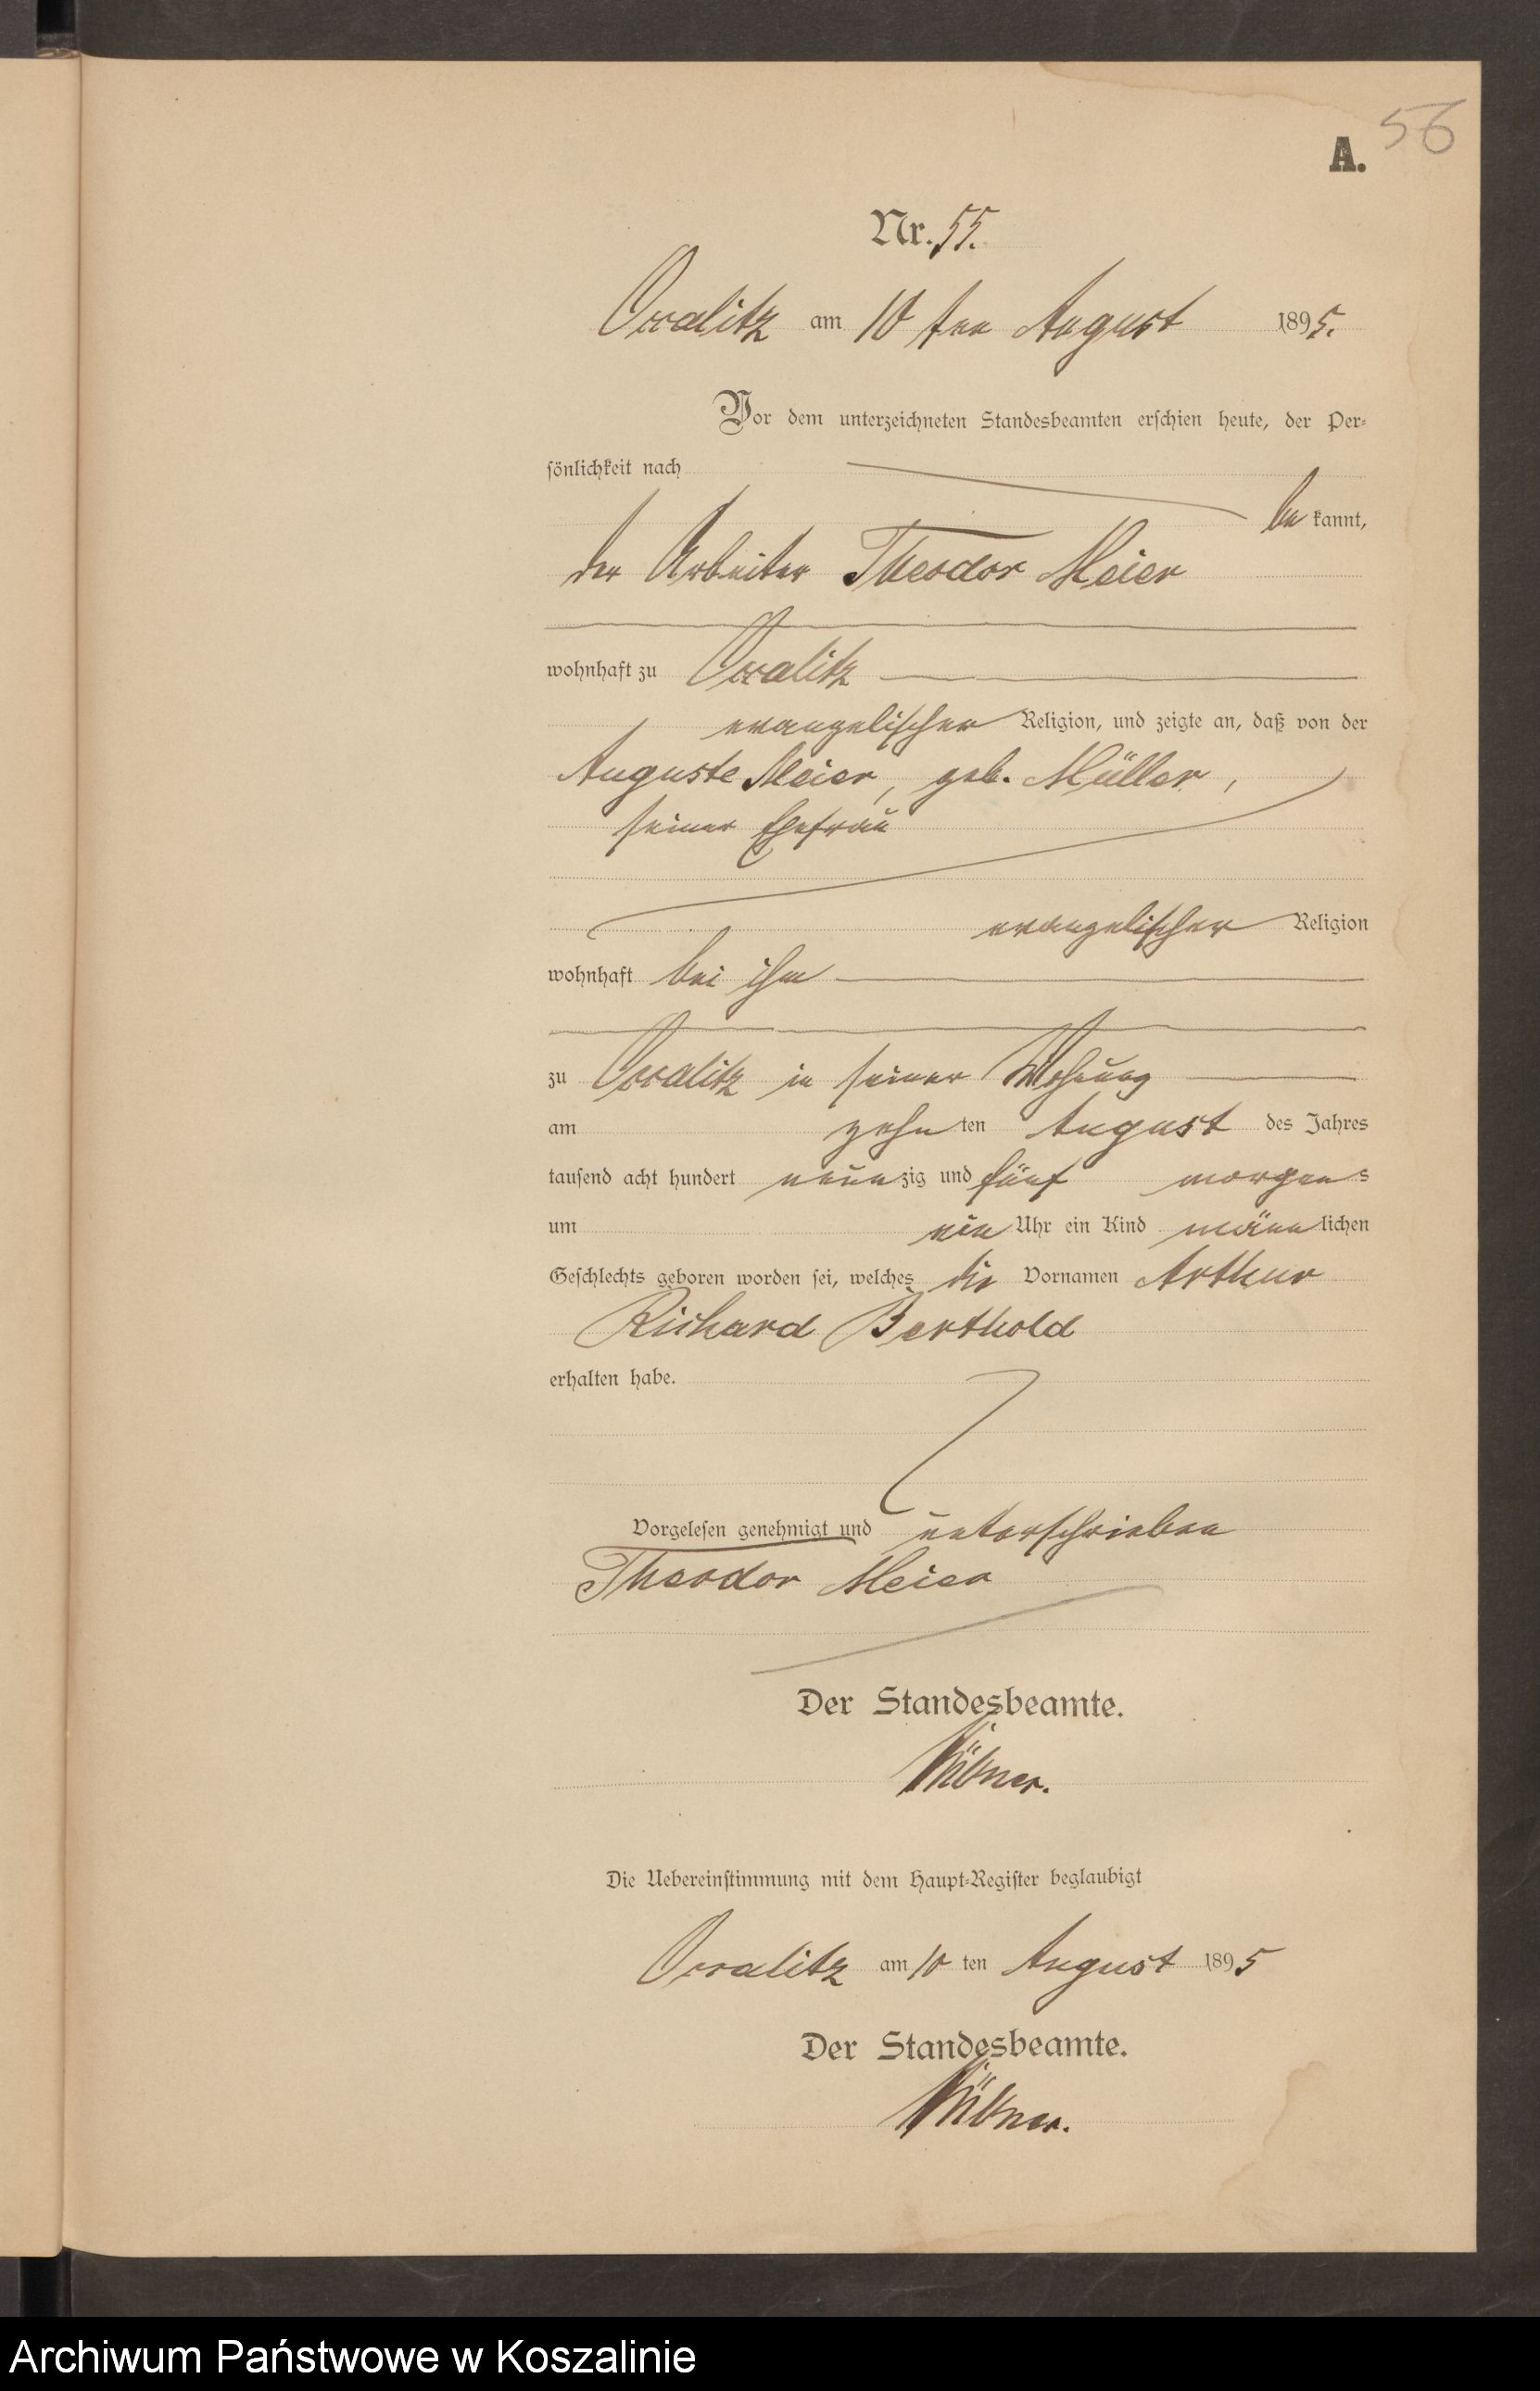 56
A.
Nr. 55.
am 10 ten August 1895.
Vor dem unterzeichneten Standesbeamten erschien heute, der Per-
sönlichkeit nach
be kannt,
der Arbeiter Theodor Meier
wohnhaft zu
evangelischer Religion, und zeigte an, daß von der
Auguste Meier, geb. Müller,
seiner Ehefrau
evangelischer Religion
wohnhaft bei ihm
zu in seiner Wohnung
am zehn ten August des Jahres
tausend acht hundert neun zig und fünf morgen s
um ein Uhr ein Kind männ lichen
Geschlechts geboren worden sei, welches die Vornamen Arthur
Richard Berthold
erhalten habe.
Vorgelesen genehmigt und unterschrieben
Theodor Meier
Der Standesbeamte.
Die Uebereinstimmung mit dem Haupt-Register beglaubigt
am 10 ten August 1895
Der Standesbeamte.
Archiwum Państwowe w Koszalinie